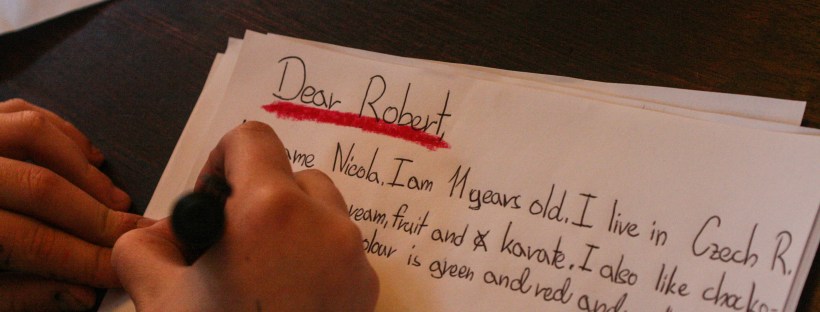 Dear Robert,
ame Nicola. I am 11 years old. I live in Czech R.
ream, fruit and karate. I also like chocko-
olour is green and red and